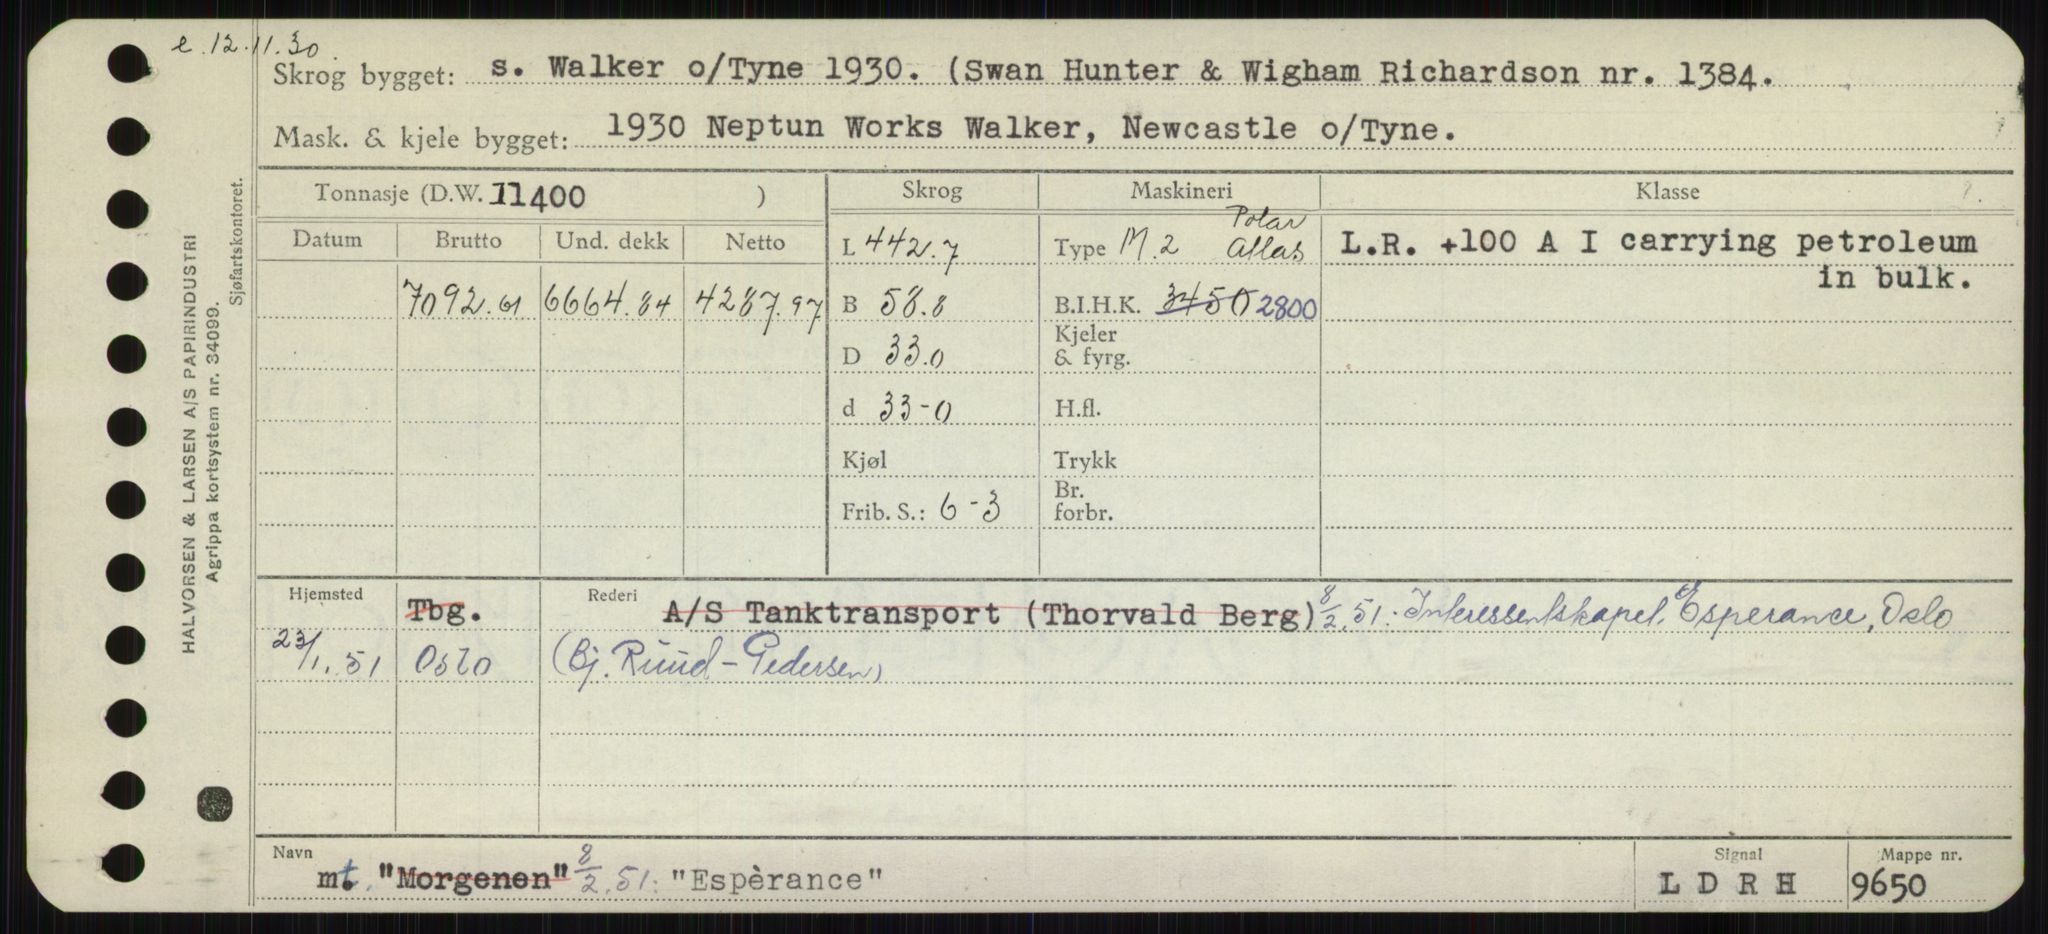 e. 12.11.30
Skrog bygget: s. Walker o/Tyne 1930. (Swan Hunter & Wigham Richardson nr. 1384.
Mask. & kjele bygget: 1930 Neptun Works Walker, Newcastle o/Tyne.
Tonnasje (D.W. 11400 ) Skrog Maskineri Klasse
Datum Brutto Und. dekk Netto
L 442.7 Type M.2 Polar Atlas
L.R. +100 A I carrying petroleum
in bulk.
7092.61 6664.84 4287.97 B 58.8 B.I.H.K. 3450 2800
D 33.0 Kjeler & fyrg.
d 33-0 H.fl.
Kjøl Trykk
Frib. S.: 6-3 Br. forbr.
Hjemsted Tbg. Rederi A/S Tanktransport (Thorvald Berg) 8/2.51: Interessentskapet Esperance, Oslo
23/1.51 Oslo (Bj. Ruud-Pedersen)
Navn Signal Mappe nr.
mt. "Morgenen" 8/2.51: "Espèrance" LDRH 9650
HALVORSEN & LARSEN A/S PAPIRINDUSTRI
Agrippa kortsystem nr. 34099.
Sjøfartskontoret.